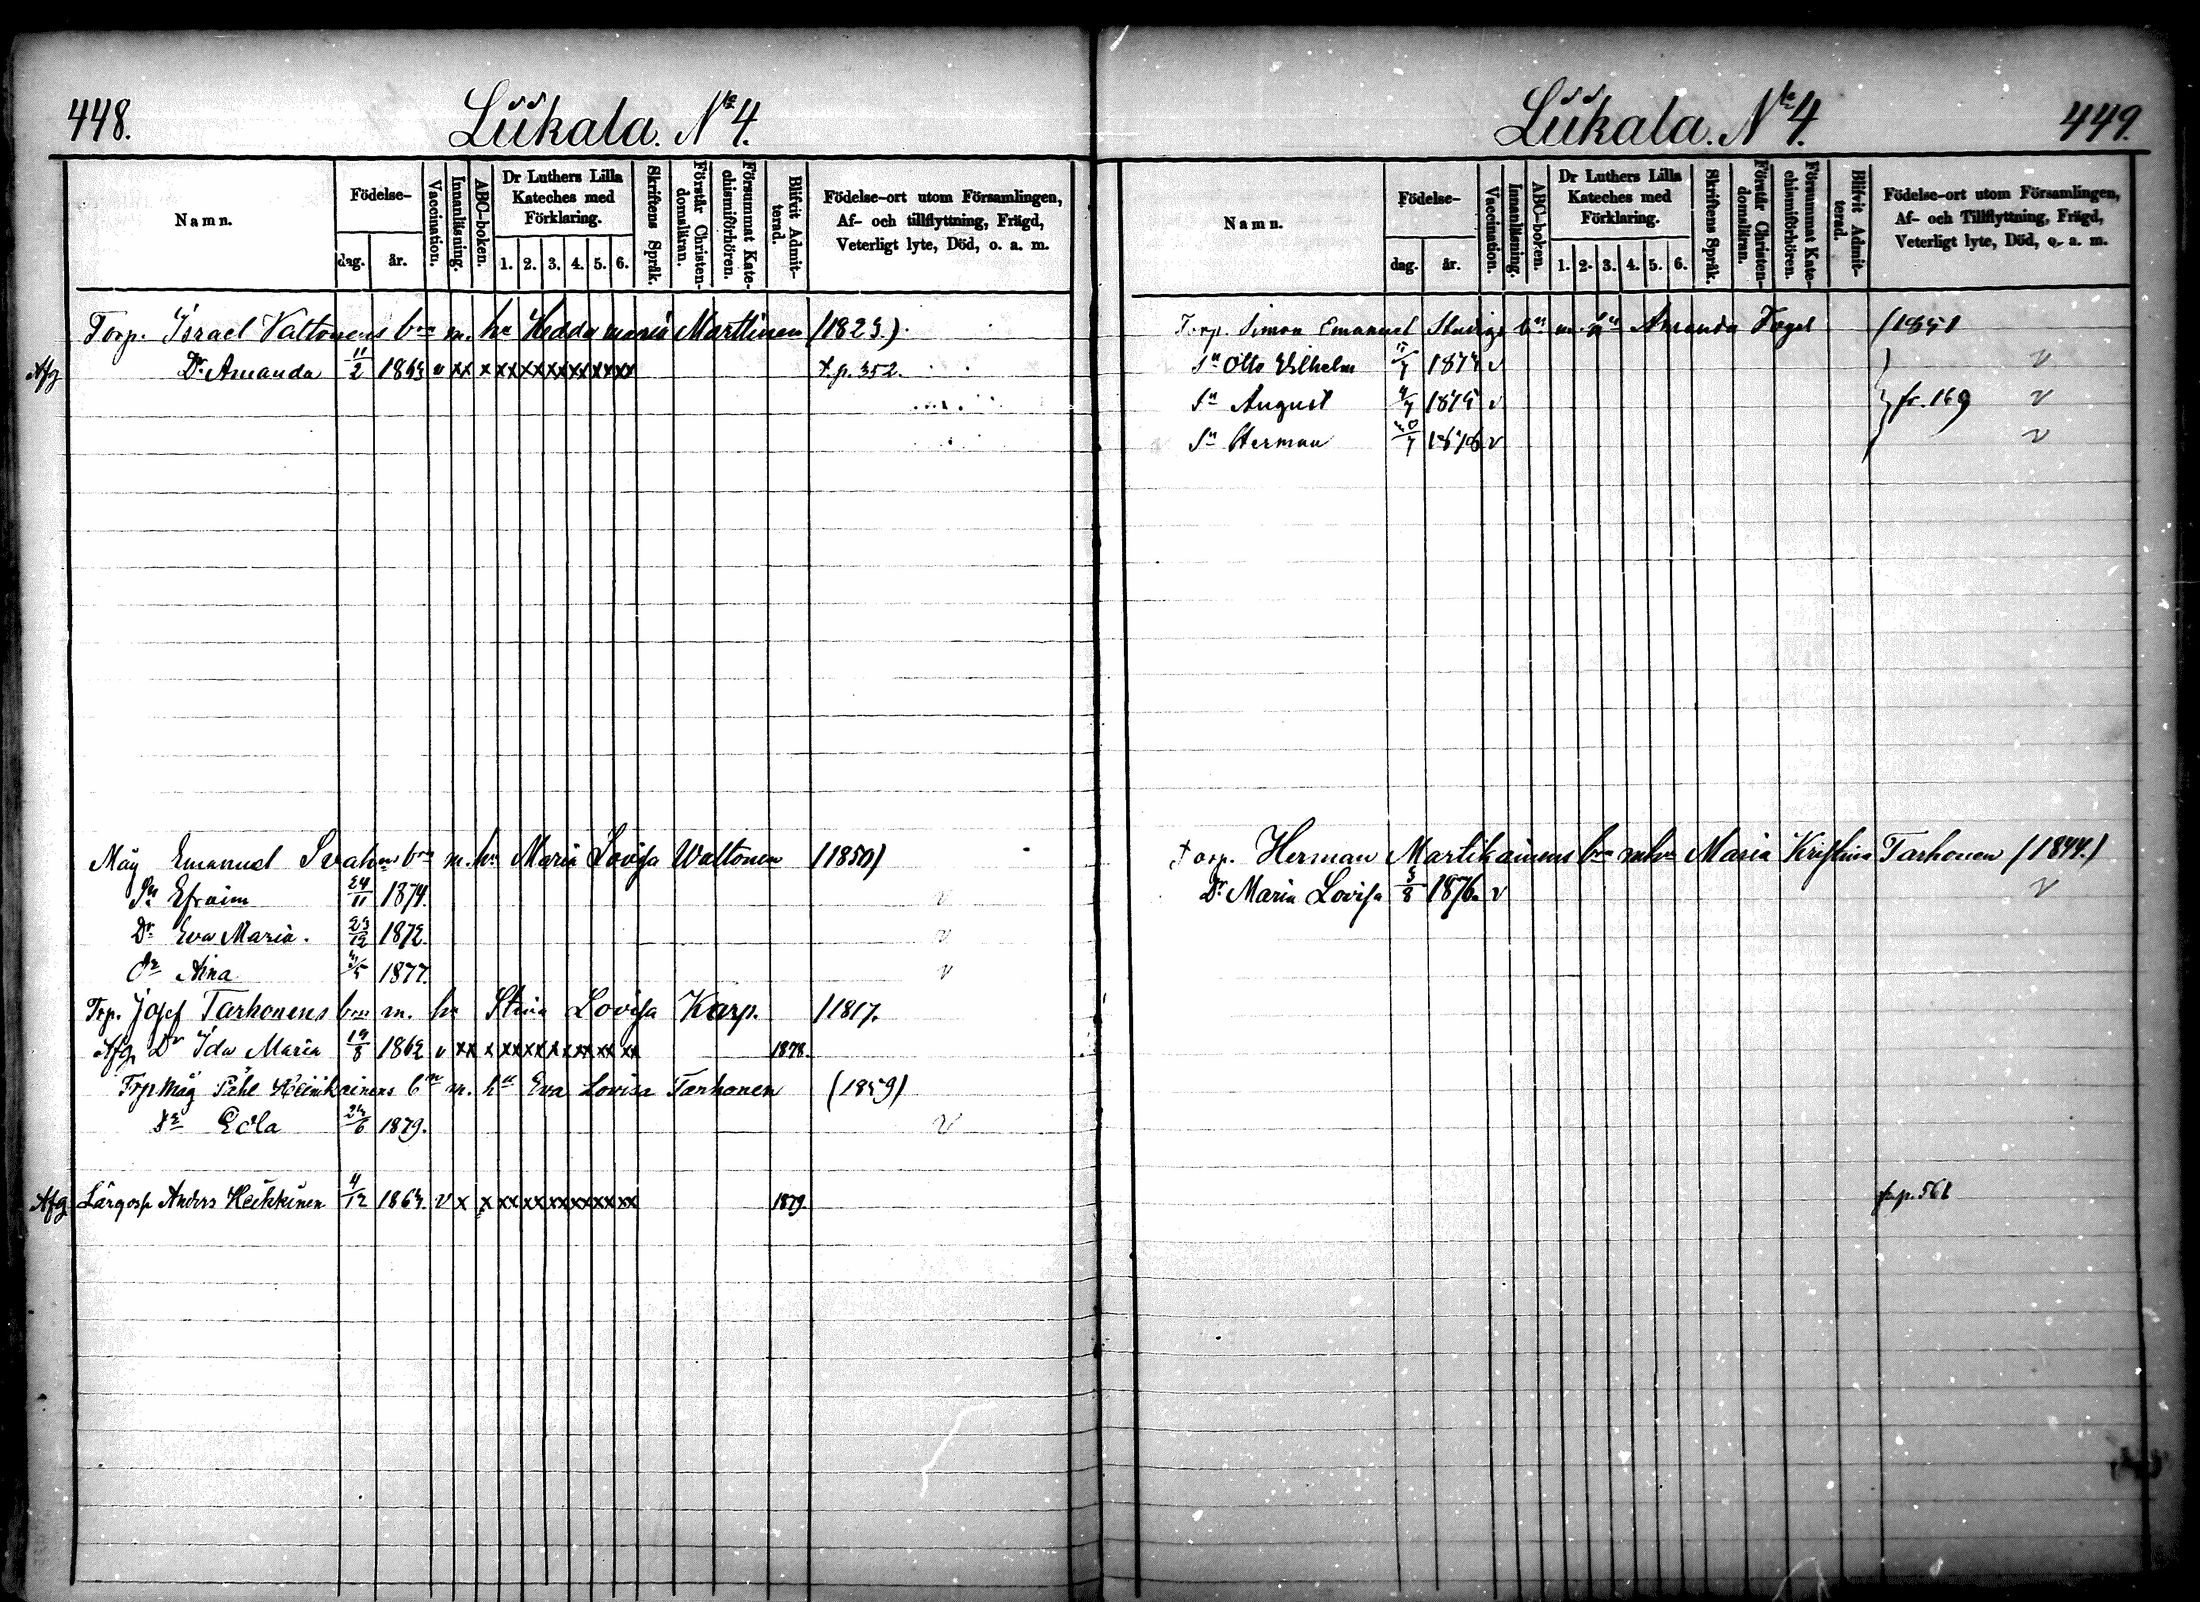 448.
Liikala. No 4.
Namn.
Födelse-
dag.
år.
Vaccination.
Innanläsning.
ABC-boken.
Dr Luthers Lilla
Kateches med
Förklaring.
1. 2. 3. 4. 5. 6.
Skriftens Språk.
Förstår Christen-
domsläran.
Försummat Kate-
chismiförhören.
Blifvit Admit-
terad.
Födelse-ort utom Församlingen,
Af- och tillflyttning, Frägd,
Veterligt lyte, Död, o. a. m.
Torp. Israel Valtonens brn m. hu Hedda Maria Marttinen (1823)
Afg Dr Amanda 11/2 1863 v xx x xx xx xx xx xx xx t.p. 352.
Måg Emanuel m. hu Maria Lovisa Waltonen (1850)
Sn Efraim 24/11 1874. v
Dr Eva Maria. 23/12 1872. v
Dr Aina 1877. v
Trp. Josef Tarhonens brn m. hu Stina Lovisa Karp. (1817.
Afg. Dr Ida Maria 19/8 1862 v xx x xx xx xx xx xx xx 1878.
Trp måg Heinikainens bn m. hu Eva Lovisa Tarhonen (1859)
Dr Edla 1879. v
Afg. Anders Heikkinen 4/12 1863. v x x xx xx xx xx xx xx 1879.
Liikala. No 4.
449.
Namn.
Födelse-
dag.
år.
Vaccination.
Innanläsning.
ABC-boken.
Dr Luthers Lilla
Kateches med
Förklaring.
1. 2. 3. 4. 5. 6.
Skriftens Språk.
Förstår Christen-
domsläran.
Försummat Kate-
chismiförhören.
Blifvit Admit-
terad.
Födelse-ort utom Församlingen,
Af- och Tillflyttning, Frägd,
Veterligt lyte, Död, o. a. m.
Torp. Simon Emanuel bn m. hu Amanda Fogel (1851
Sn Otto Vilhelm v v
Sn August 1875 v fr. 169 v
Sn Herman v v
Torp. Herman Martikainens brn m hu Maria Kristina Tarhonen (1844.)
Dr Maria Lovisa 5/8 1876. v v
fr p. 561